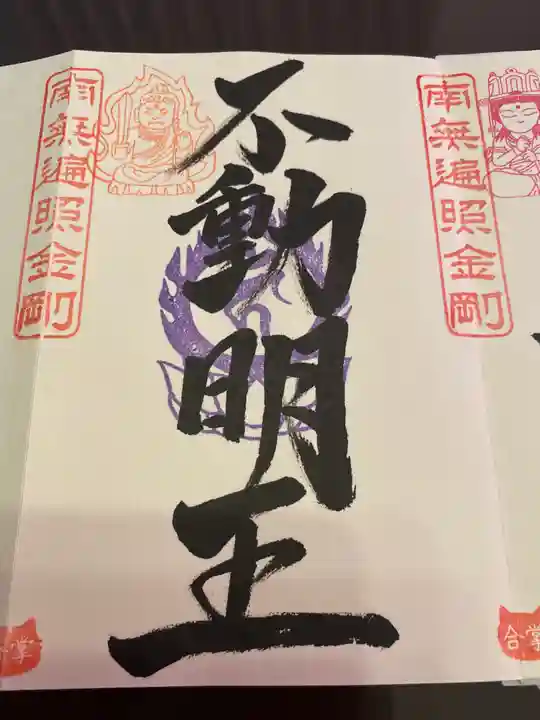 南無遍照金剛
不動明王
南無遍照金剛
合掌
合掌